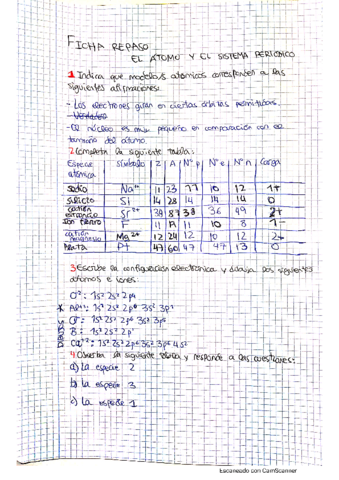 FICHA REPASO
EL ATOMO Y EL SISTEMA PERIODICO
1 Indica que modelo/s atómicos corresponden a las
siguientes afirmaciones:
- Los electrones giran en ciertas órbitas permitidas.
- Verdadero
- El núcleo es muy pequeño en comparación con el
tamaño del átomo.
2 Completa la siguiente tabla:
Especie atómica Símbolo Z A Nº p Nº e Nº n Carga
sodio Na¹⁺ 11 23 11 10 12 1+
silicio Si 14 28 14 14 14 0
catión estroncio Sr²⁺ 38 87 38 36 49 2+
Ion F 11 A 11 10 8 1-
catión magnesio Mg²⁺ 12 24 12 10 12 2+
Plata Pt 47 60 47 47 13 0
3 Escribe la configuración electrónica y dibuja los siguientes
átomos e iones:
O⁻²: 1s² 2s² 2p⁴
1s² 2s² 2p⁶ 3s² 3p¹
1s² 2s² 2p⁶ 3s² 3p⁵
B: 1s² 2s² 2p¹
Ca⁺²: 1s² 2s² 2p⁶ 3s² 3p⁶ 4s²
4 Observa la siguiente tabla y responde a las cuestiones:
a) La especie 2
b) La especie 3
c) La especie 1
Escaneado con CamScanner